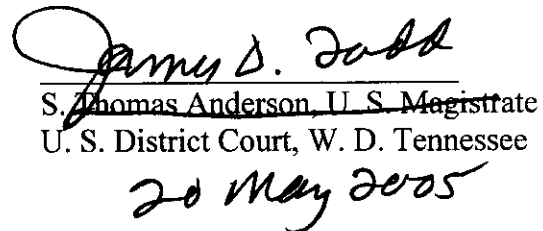 James D. Todd
S. Thomas Anderson, U. S. Magistrate
U. S. District Court, W. D. Tennessee
20 May 2005